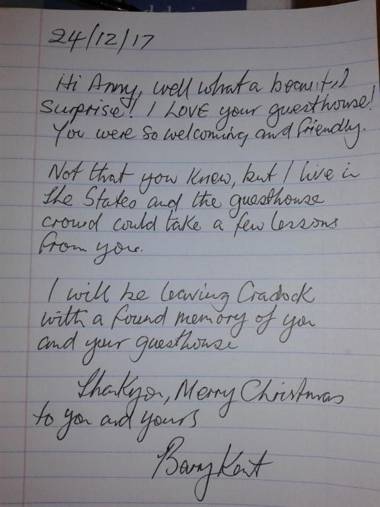 24/12/17
Hi Anny, well what a beautiful
surprise! I LOVE your guesthouse!
You were so welcoming and friendly.
Not that you knew, but I live in
the States and the guesthouse
crowd could take a few lessons
from you.
I will be leaving Cradock
with a found memory of you
and your guesthouse
Thankyou, Merry Christmas
to you and yours
Barry Kent